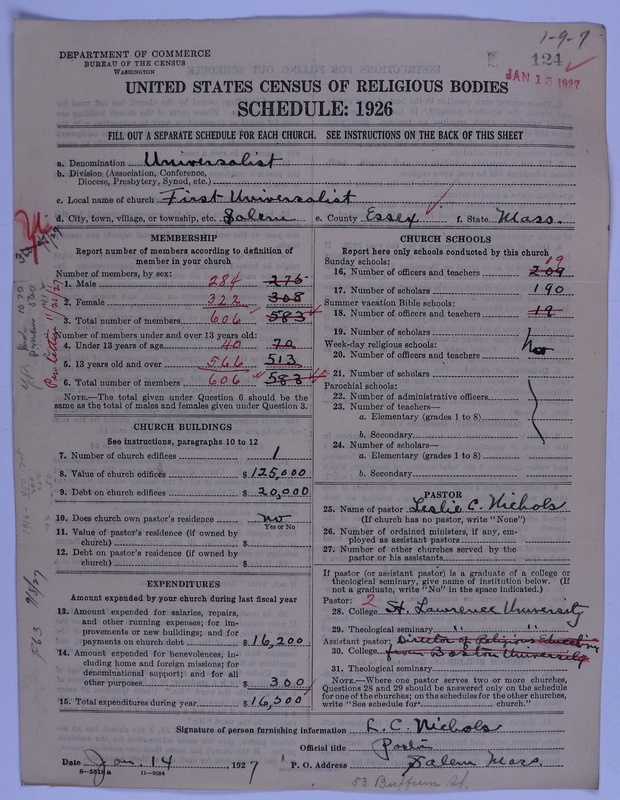 1-9-7
DEPARTMENT OF COMMERCE
BUREAU OF THE CENSUS
WASHINGTON
124
JAN 15 1927
UNITED STATES CENSUS OF RELIGIOUS BODIES
SCHEDULE: 1926
FILL OUT A SEPARATE SCHEDULE FOR EACH CHURCH. SEE INSTRUCTIONS ON THE BACK OF THIS SHEET
a. Denomination Universalist
b. Division (Association, Conference,
Diocese, Presbytery, Synod, etc.)
c. Local name of church First Universalist
d. City, town, village, or township, etc. Salem e. County Essex f. State Mass.
MEMBERSHIP
Report number of members according to definition of
member in your church
Number of members, by sex:
1. Male 284 275
2. Female 322 308
3. Total number of members 606 583
Number of members under and over 13 years old:
4. Under 13 years of age 40 70
5. 13 years old and over 566 513
6. Total number of members 606 583
NOTE.—The total given under Question 6 should be
same as the total of males and females given under Question 3.
CHURCH BUILDINGS
See instructions, paragraphs 10 to 12
7. Number of church edifices 1
8. Value of church edifices $125,000
9. Debt on church edifices $20,000
10. Does church own pastor's residence no
Yes or No
11. Value of pastor's residence (if owned by
church) $
12. Debt on pastor's residence (if owned by
church) $
EXPENDITURES
Amount expended by your church during last fiscal year
13. Amount expended for salaries, repairs,
and other running expenses; for im-
provements or new buildings; and for
payments on church debt $16,200
14. Amount expended for benevolences, in-
cluding home and foreign missions; for
denominational support; and for all
other purposes $300
15. Total expenditures during year $16,500
CHURCH SCHOOLS
Report here only schools conducted by this church
Sunday schools:
19
16. Number of officers and teachers 209
17. Number of scholars 190
Summer vacation Bible schools:
18. Number of officers and teachers 19
19. Number of scholars
Week-day religious schools:
no
20. Number of officers and teachers
21. Number of scholars
Parochial schools:
22. Number of administrative officers
23. Number of teachers—
a. Elementary (grades 1 to 8)
b. Secondary
24. Number of scholars—
a. Elementary (grades 1 to 8)
b. Secondary
PASTOR
25. Name of pastor Leslie C. Nichols
(If church has no pastor, write "None")
26. Number of ordained ministers, if any, em-
ployed as assistant pastors
27. Number of other churches served by the
pastor or his assistants
If pastor (or assistant pastor) is a graduate of a college or
theological seminary, give name of institution below. (If
not a graduate, write "No" in the space indicated.)
Pastor: 2
28. College St. Lawrence University
29. Theological seminary " "
Assistant pastor: Director of Religious Education
30. College from Boston University
31. Theological seminary
NOTE.—Where one pastor serves two or more churches,
Questions 28 and 29 should be answered only on the schedule
for one of the churches; on the schedules for the other churches,
write "See schedule for church."
Signature of person furnishing information L. C. Nichols
Official title Pastor
Date Jan. 14, 1927 P. O. Address Salem Mass.
8-5512a 11-9084
53 Buffum St.